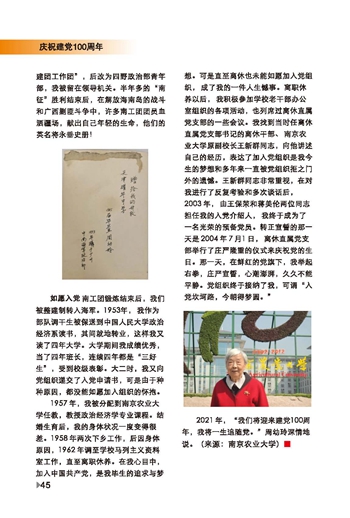 庆祝建党100周年
建团工作团”，后改为四野政治部青年
部，我被留在领导机关。半年多的“南
征”胜利结束后，在解放海南岛的战斗
和广西剿匪斗争中，许多南工团团员血
洒疆场，献出自己年轻的生命，他们的
英名将永垂史册！
如愿入党 南工团锻炼结束后，我们
被推建制转入海军。1953年，我作为
部队调干生被保送到中国人民大学政治
经济系读书，其间就地转业，这样我又
读了四年大学。大学期间我成绩优秀，
当了四年班长，连续四年都是“三好
生”，受到校级表彰。大二时，我又向
党组织递交了入党申请书，可是由于种
种原因，都没能如愿加入组织的怀抱。
1957年，我被分配到南京农业大
学任教，教授政治经济学专业课程。结
婚生育后，我的身体状况一度变得很
差。1958年两次下乡工作，后因身体
原因，1962年调至学校马列主义资料
室工作，直至离职休养。在我心目中，
加入中国共产党，是我毕生的追求与梦
想。可是直至离休也未能如愿加入党组
织，成了我的一件人生憾事。离职休
养以后，我积极参加学校老干部办公
室组织的各项活动，也列席过离休直属
党支部的一些会议。我找到当时任离休
直属党支部书记的离休干部、南京农
业大学原副校长王新群同志，向他讲述
自己的经历，表达了加入党组织是我今
生的梦想和多年来一直被党组织拒之门
外的遗憾。王新群同志非常重视，在对
我进行了反复考验和多次谈话后，
2003年，由王保荣和蒋美伦两位同志
担任我的入党介绍人，我终于成为了
一名光荣的预备党员。转正宣誓的那一
天是2004年7月1日，离休直属党支
部举行了庄严隆重的仪式来庆祝党的生
日。那一天，在鲜红的党旗下，我举起
右拳，庄严宣誓，心潮澎湃，久久不能
平静。党组织终于接纳了我，可谓“入
党坎坷路，今朝得梦圆。”
2021年，“我们将迎来建党100周
年，我将一生追随党。”周幼玲深情地
说。（来源：南京农业大学）
45